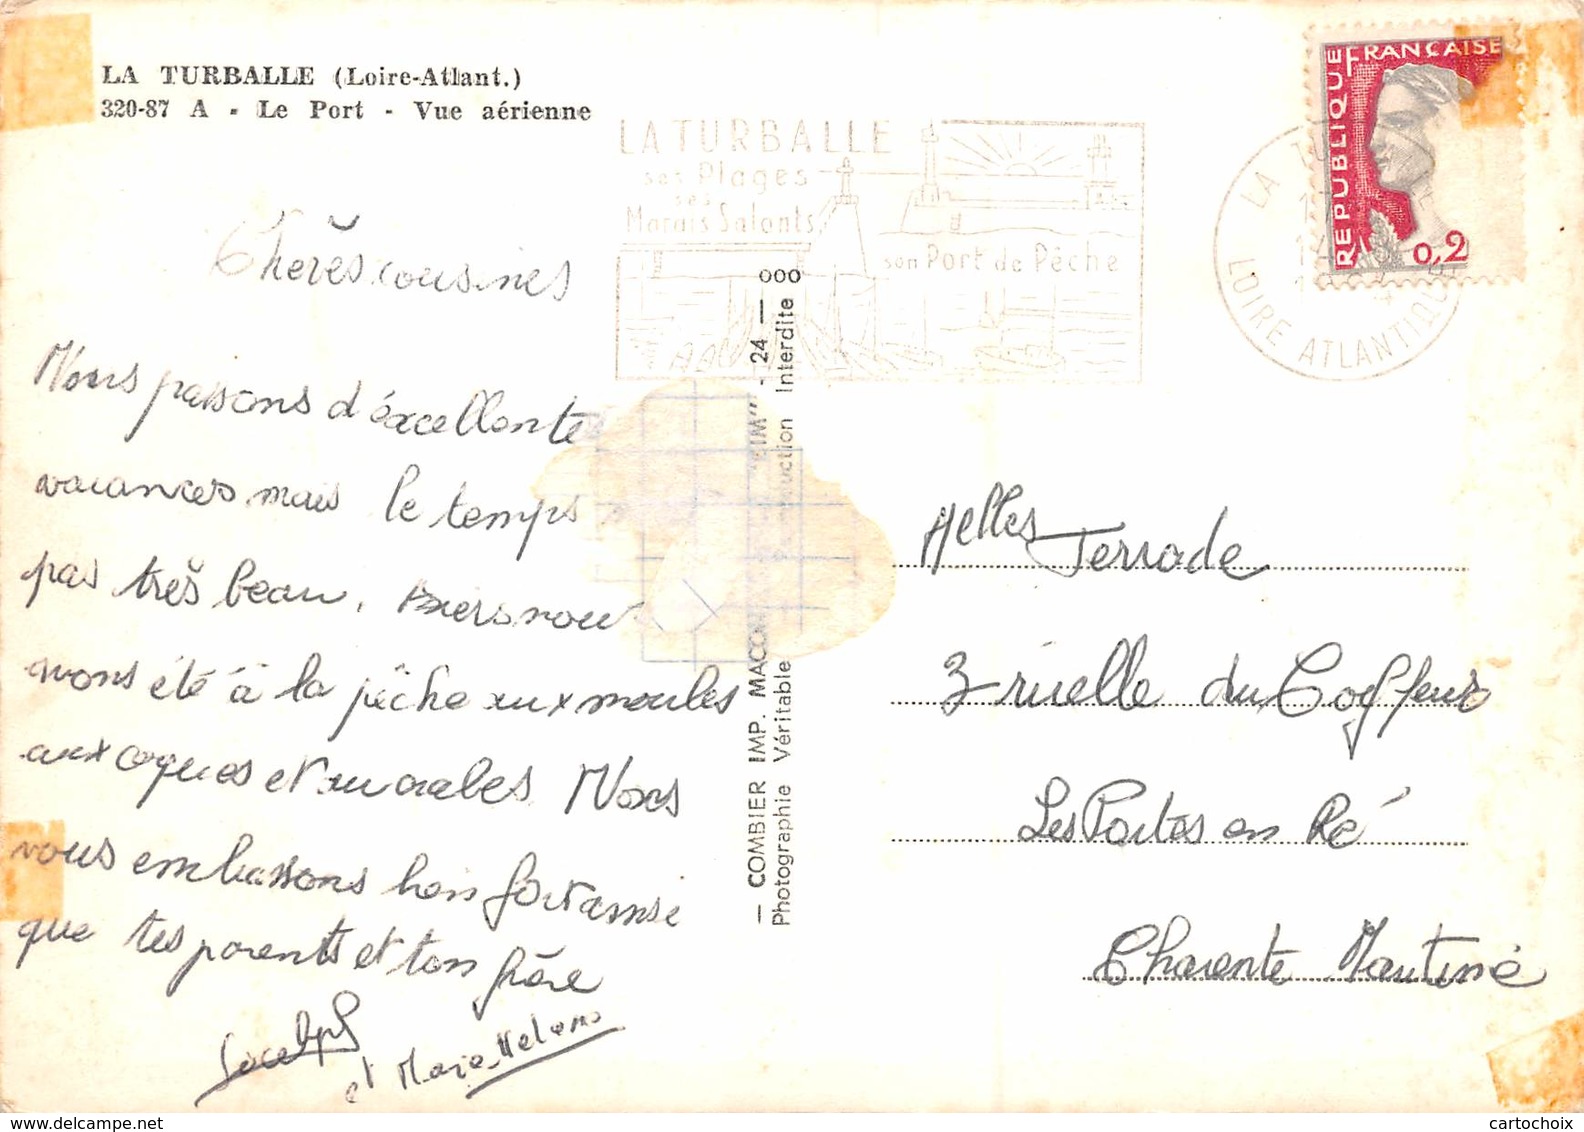 LA TURBALLE (Loire-Atlant.)
320-87 A - Le Port - Vue aérienne
LA TURBALLE
ses Plages
ses
Marais Salants
son Port de Pêche
REPUBLIQUE FRANÇAISE
0,2
LA
LOIRE ATLANTIQUE
Chères cousines
Nous passons d'éxcellente
vacances mais le temps
pas très beau. nous
avons été à la pêche aux moules
aux coques et au crabes Nous
vous embrassons bien fort ainsi
que tes parents et ton frère
Jocelyne
et Marie-Helene
— COMBIER IMP. MACON "CIM" - 24 — 000
Photographie Véritable Interdite
Melles Terrade
3 ruelle du Coiffeur
Les Portes en Ré
Charente Maritime
cartochoix